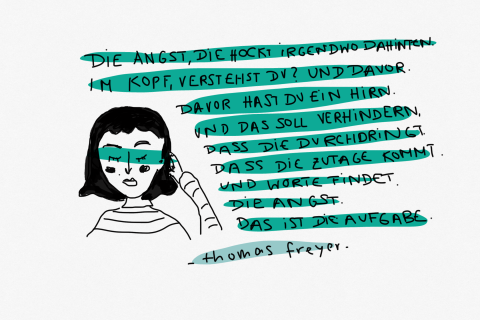 DIE ANGST, DIE HOCKT IRGENDWO DAHINTEN.
IM KOPF, VERSTEHST DU? UND DAVOR.
DAVOR HAST DU EIN HIRN.
UND DAS SOLL VERHINDERN,
DASS DIE DURCHDRINGT.
DASS DIE ZUTAGE KOMMT.
UND WORTE FINDET.
DIE ANGST.
DAS IST DIE AUFGABE.
- thomas freyer.